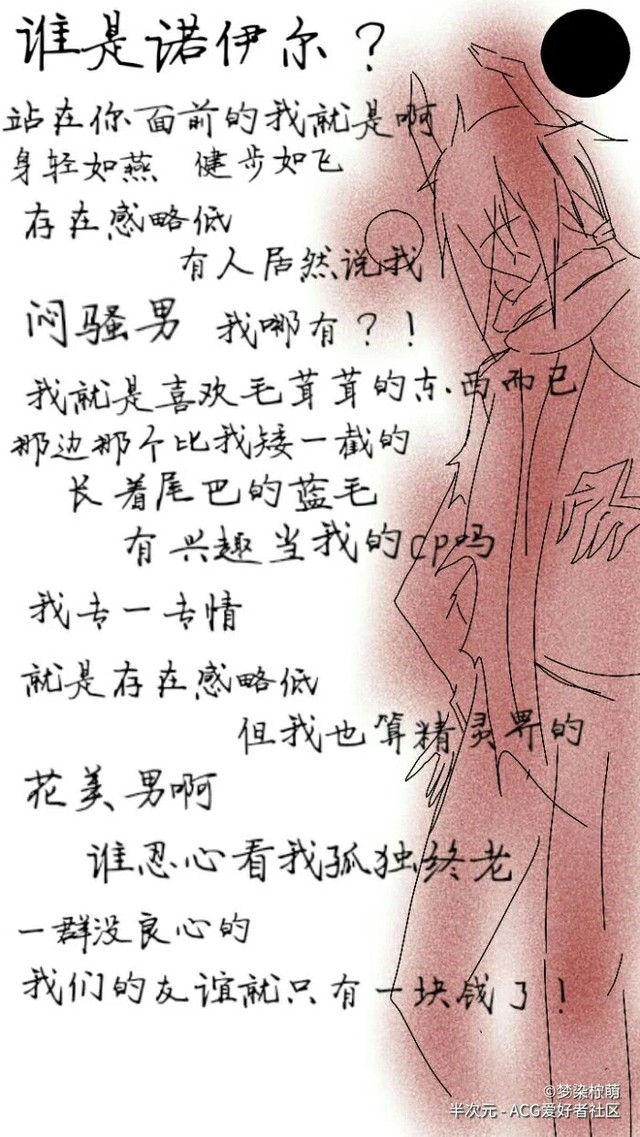 谁是诺伊尔？
站在你面前的我就是啊
身轻如燕 健步如飞
存在感略低
有人居然说我
闷骚男 我哪有？！
我就是喜欢毛茸茸的东西而已
那边那个比我矮一截的
长着尾巴的蓝毛
有兴趣当我的cp吗
我专一专情
就是存在感略低
但我也算精灵界的
花美男啊
谁忍心看我孤独终老
一群没良心的
我们的友谊就只有一块钱了！
©梦染柠萌
半次元 - ACG爱好者社区